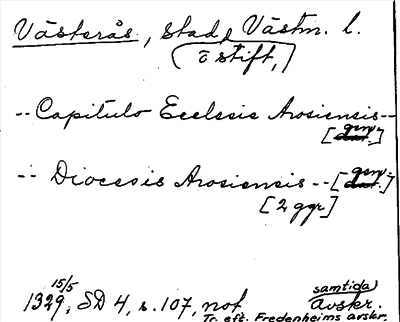 Västerås, stad, Västm. l.
(o stift,)
-- Capitulo Ecclesie Arosiensis --
[gen.]
-- Diocesis Arosiensis -- [gen.]
[2 ggr]
15/5
1329, SD 4, s. 107, not
samtida
avskr.
Tr. eft. Fredenheims avskr.